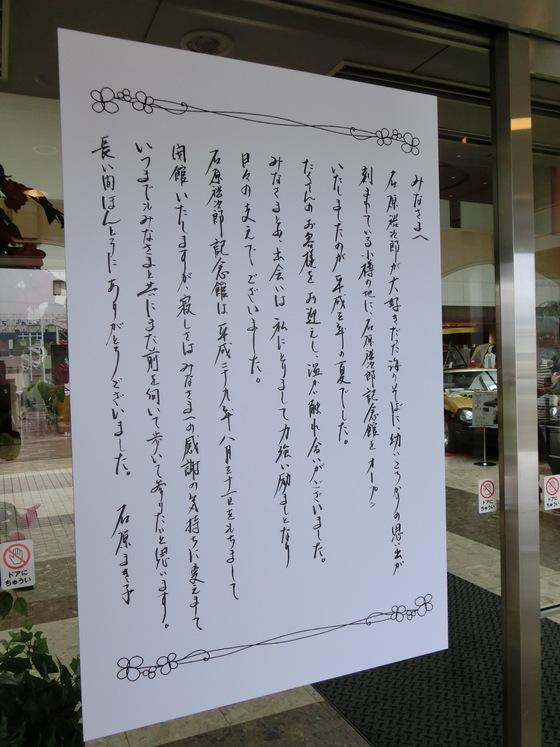 みなさまへ
石原裕次郎が大好きだった海のそばに、幼いころからの思い出が
刻まれている小樽の地に、石原裕次郎記念館をオープン
いたしましたのが、平成三年の夏でした。
たくさんのお客様をお迎えし、温かい触れ合いがございました。
みなさまとの出会いは、私にとりまして力強い励ましとなり
日々の支えでございました。
石原裕次郎記念館は、平成二十九年八月三十一日をもちまして
閉館いたしますが、寂しさはみなさまへの感謝の気持ちに変えまして
いつまでもみなさまと共にまた前を向いて歩いて参りたいと思います。
長い間ほんとうにありがとうございました。 石原まき子
ドアに
ちゅうい
ドアに
ちゅうい